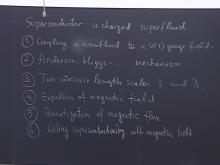 Superconductor a charged superfluid.
① Coupling a superfluid to a U(1) gauge field.
② Anderson-Higgs-... mechanism
③ Two intrinsic length scales ξ and λ.
④ Expulsion of magnetic field
⑤ Quantization of magnetic flux
⑥ Killing superconductivity with magnetic field